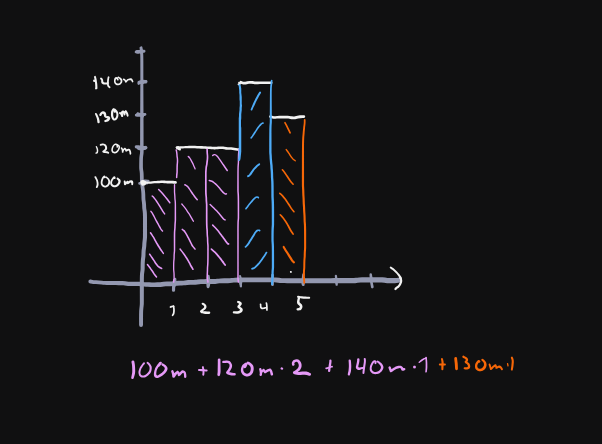 140m
130m
120m
100m
1 2 3 4 5
100m + 120m · 2 + 140m · 1 + 130m · 1